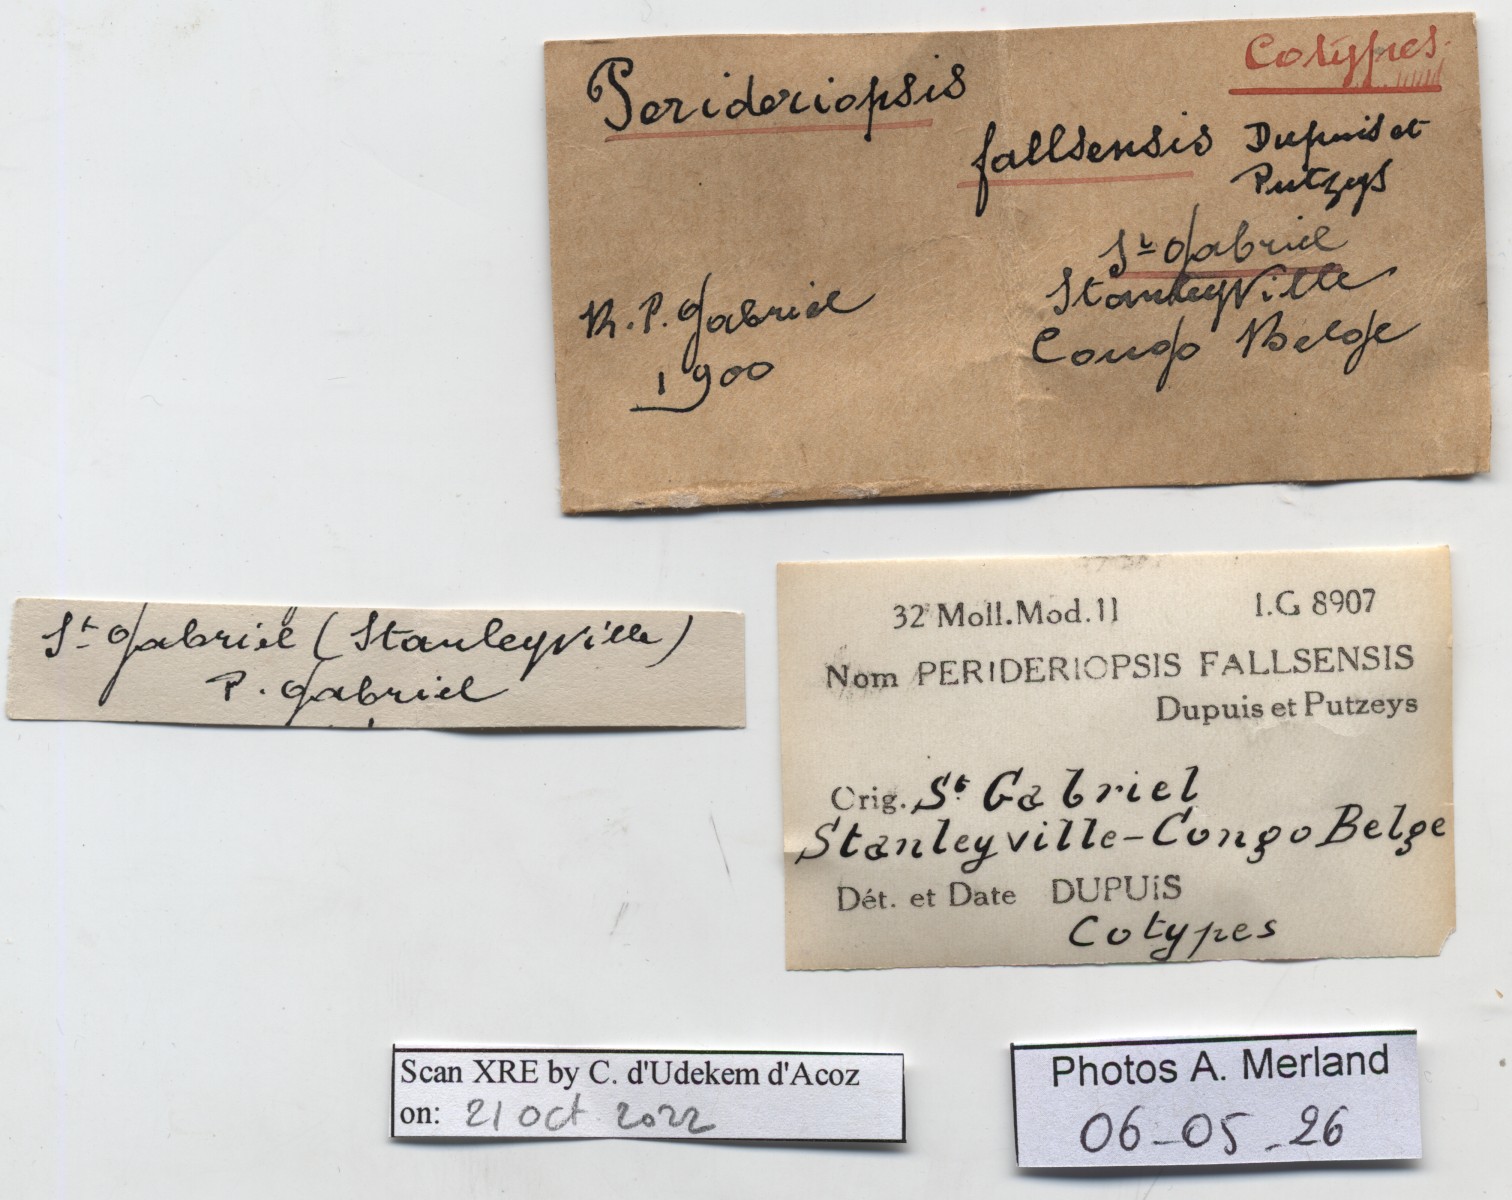 Cotypes.
Perideriopsis
fallsensis Dupuis et
Putzeys
St Gabriel
Stanleyville
Congo Belge
R. P. Gabriel
1900
St Gabriel (Stanleyville)
P. Gabriel
32 Moll. Mod. 11 I.G 8907
Nom PERIDERIOPSIS FALLSENSIS
Dupuis et Putzeys
Orig. St Gabriel
Stanleyville-Congo Belge
Dét. et Date DUPUiS
Cotypes
Scan XRE by C. d'Udekem d'Acoz
on: 21 Oct 2022
Photos A. Merland
06-05-26